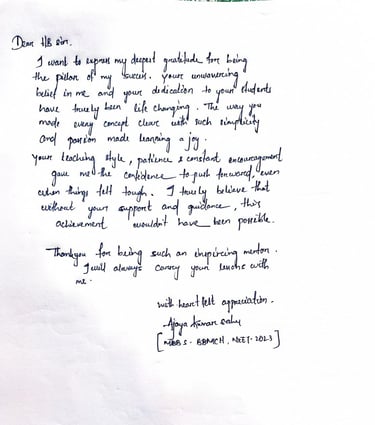 Dear HB Sir,
I want to express my deepest gratitude for being
the pillar of my success. Your unwavering
belief in me and your dedication to your students
have truely been life changing. The way you
made every concept clear with such simplicity
and passion made learning a joy.
Your teaching style, patience & constant encouragement
gave me the confidence to push forward, even
when things felt tough. I truely believe that
without your support and guidance, this
achievement wouldn't have been possible.
Thankyou for being such an inspiring mentor.
I will always carry your lessons with
me.
with heartfelt appreciation.
Ajaya Kumar Sahu
[MBBS - BBMCH, NEET-2023]